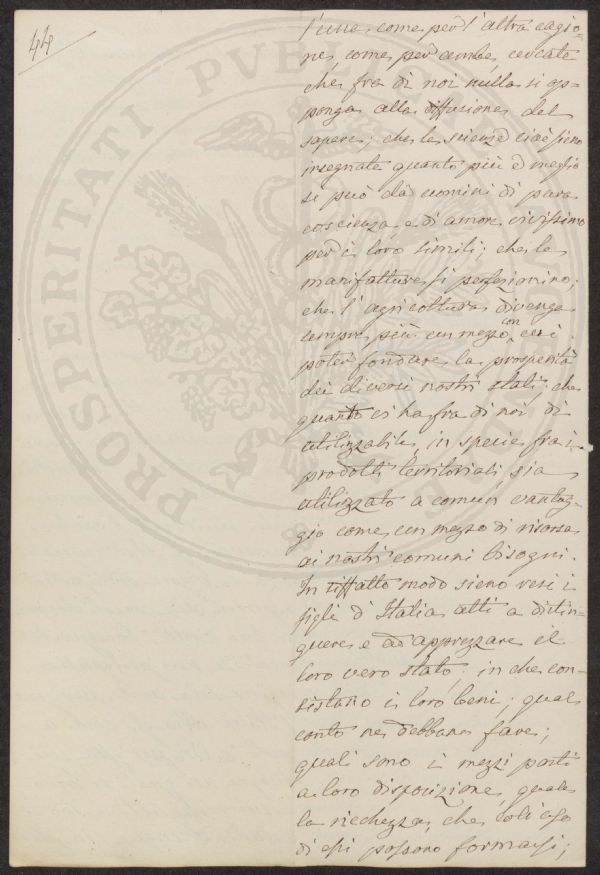 44
l'une, come per l'altra cagio=
ne, come per ambe, cercate
che fra di noi nulla si op=
ponga alla diffusione del
sapere; che le scienze cioè sieno
insegnate quanto più e meglio
si può da uomini di pura
coscienza e di amore vivissimo
per i loro simili; che le
manifatture si perfezionino;
che l'agricoltura divenga
sempre più un mezzo, con cui
poter fondare la prosperità
dei diversi nostri stati; che
quanto vi ha fra di noi di
utilizzabile, in specie fra i
prodotti territoriali, sia
utilizzato a comun vantag=
gio come un mezzo di risorsa
ai nostri comuni bisogni.
In siffatto modo sieno resi i
figli d'Italia atti a distin=
guere e ad apprezzare il
loro vero stato; in che con=
sistano i loro beni; qual
conto ne debbano fare;
quali sono i mezzi posti
a loro disposizione, quale
la ricchezza, che coll'uso
di essi possono formarsi;
PROSPERITATI PVBL